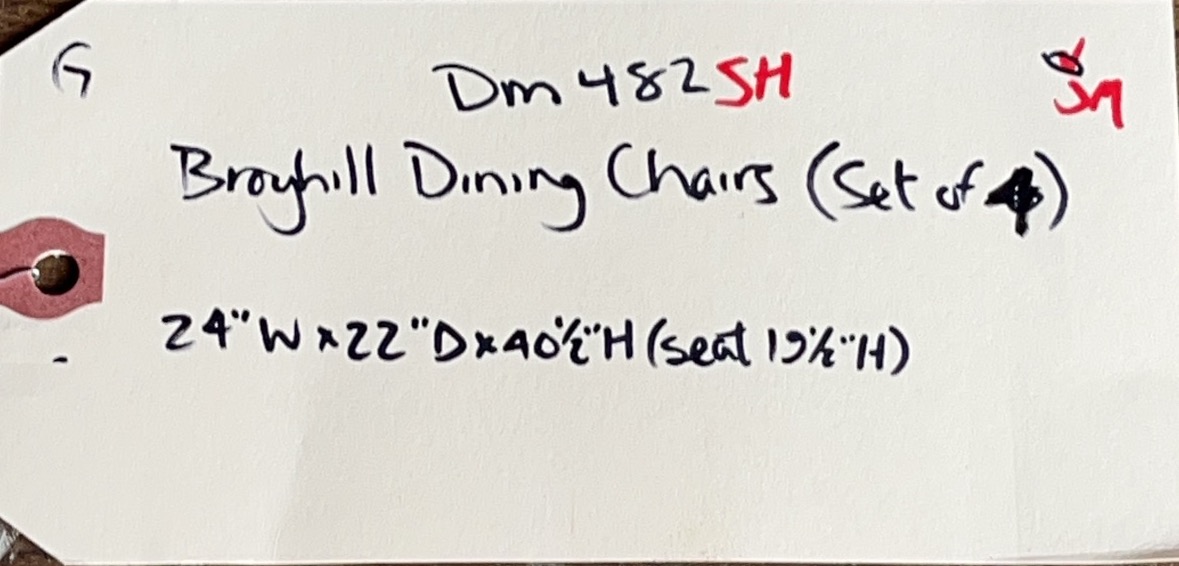 G
Dm 482 SH
Broyhill Dining Chairs (Set of 4)
24"W x 22"D x 40½"H (seat 19½"H)